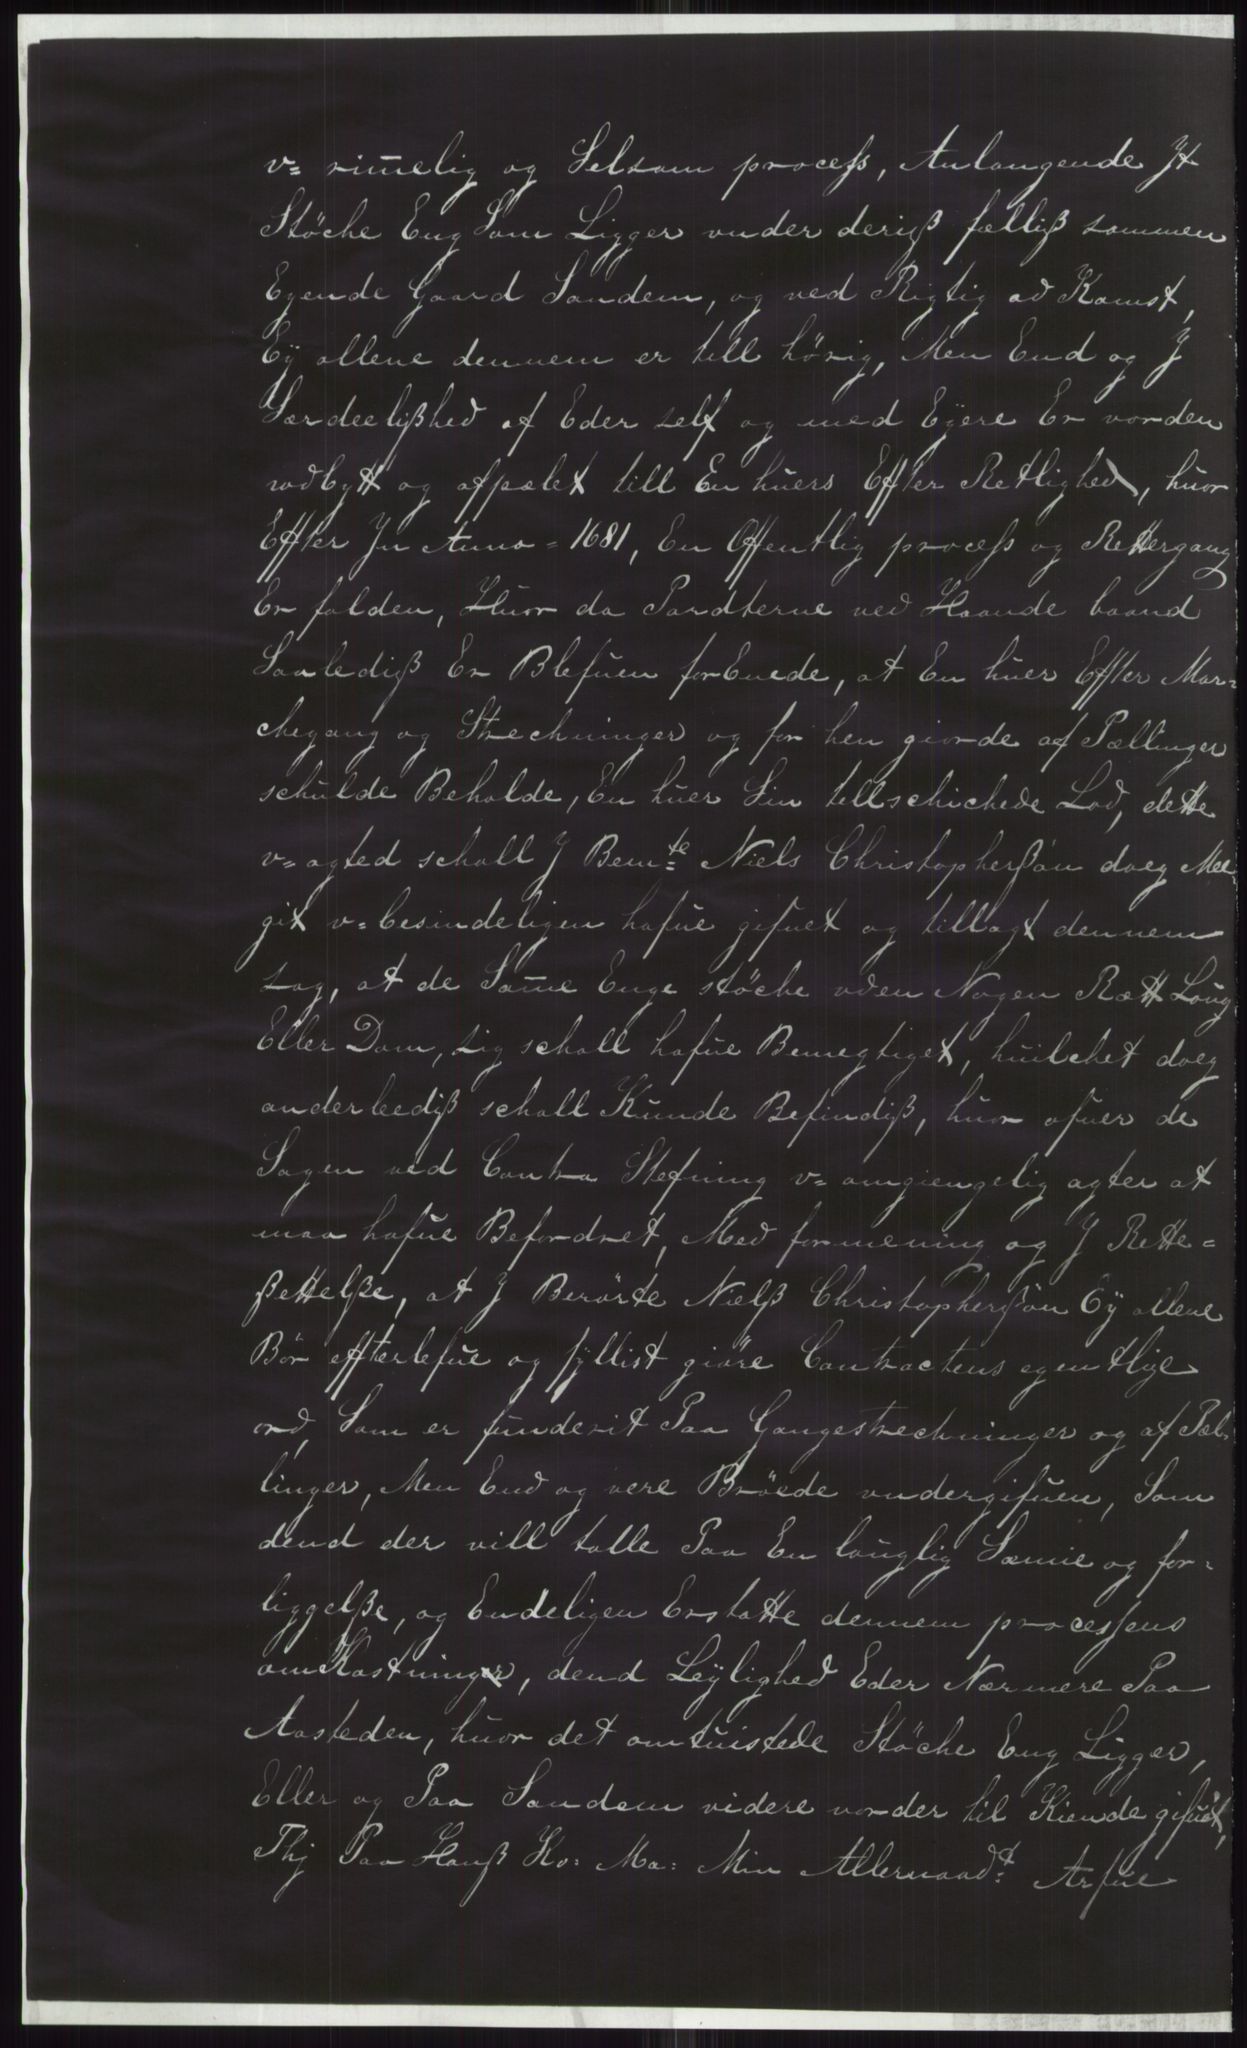 v= rim̅elig og Selsom process, Anlangende Jt
Støche Eng Som Ligger vnder deriß fælliß sammen
Egende Gaard Sandem, og ved Rigtig ad Komst,
Eÿ allene dennem er till hörig, Men End og J
Særdeelißhed af Eder self og med Eÿere Er vorden
vdbytt og afpælet till En huers Effter Retlighed, huor
Effter Jn Anno = 1681, En Offentlig process og Rettergang
Er falden, Huor da Pardterne ved Haande baand
Saalediß Er Blefuen forEnede, at En huer Effter Mar=
chegang og Strechninger og for hen giorde af Pællinger
schulde Beholde, En huer Sin tillschichede Lod, dette
v= agted schall J Bem:te Niels Christopherßön doeg Me
git v= besindeligen hafue gifuet og tillagt dennem
sag, at de Sam̅e Enge støche uden Nogen Rætt Loug
Eller Dom, sig schall hafue Bemegtiget, huilchet doeg
anderleediß schall Kunde Befindiß, huor ofuer de
Sagen ved Contra Stefning v= omgiengelig agter at
maa hafue Befordret, Med formening og J Rette=
ßettelße, at J Berörte Nielß Christopherßön Eÿ allene
Bör effterlefue og fyllist giöre Contractens egentlige
ord, Som er funderit Paa Gangestrechninger og af Pæl=
linger, Men End og vere Bröede vndergifuen, Som
dend der vill talle Paa En louglig Sæmie og for=
liggelße, og Endeligen Erstatte dennem processens
omKostninger, dend Leÿlighed Eder Nærmere Paa
Aasteden, huor det omtuistede Støche Eng Ligger,
Eller og Paa Sandem videre vorder til Kiende gifuet,
Thj Paa Hanß Ko: Ma: Min Allernaad:t Arfue